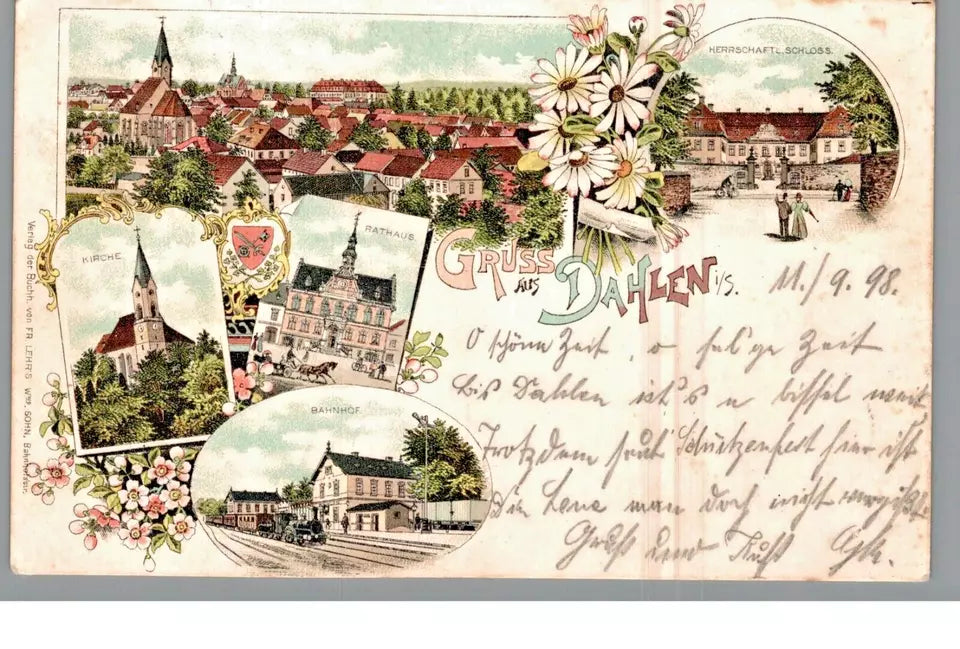 HERRSCHAFTL. SCHLOSS.
KIRCHE
RATHAUS.
GRUSS
AUS
DAHLEN i/S.
BAHNHOF.
Verlag der Buchh. von FR. LEHR'S Wwe. SOHN, Bahnhofstr.
11./9. 98.
O schöne Zeit, o sel'ge Zeit
Bis Dahlen ist's n bissel weit
Trotzdem heut Schützenfest hier ist
Die Lene man doch nicht vergißt.
Gruß und Kuß